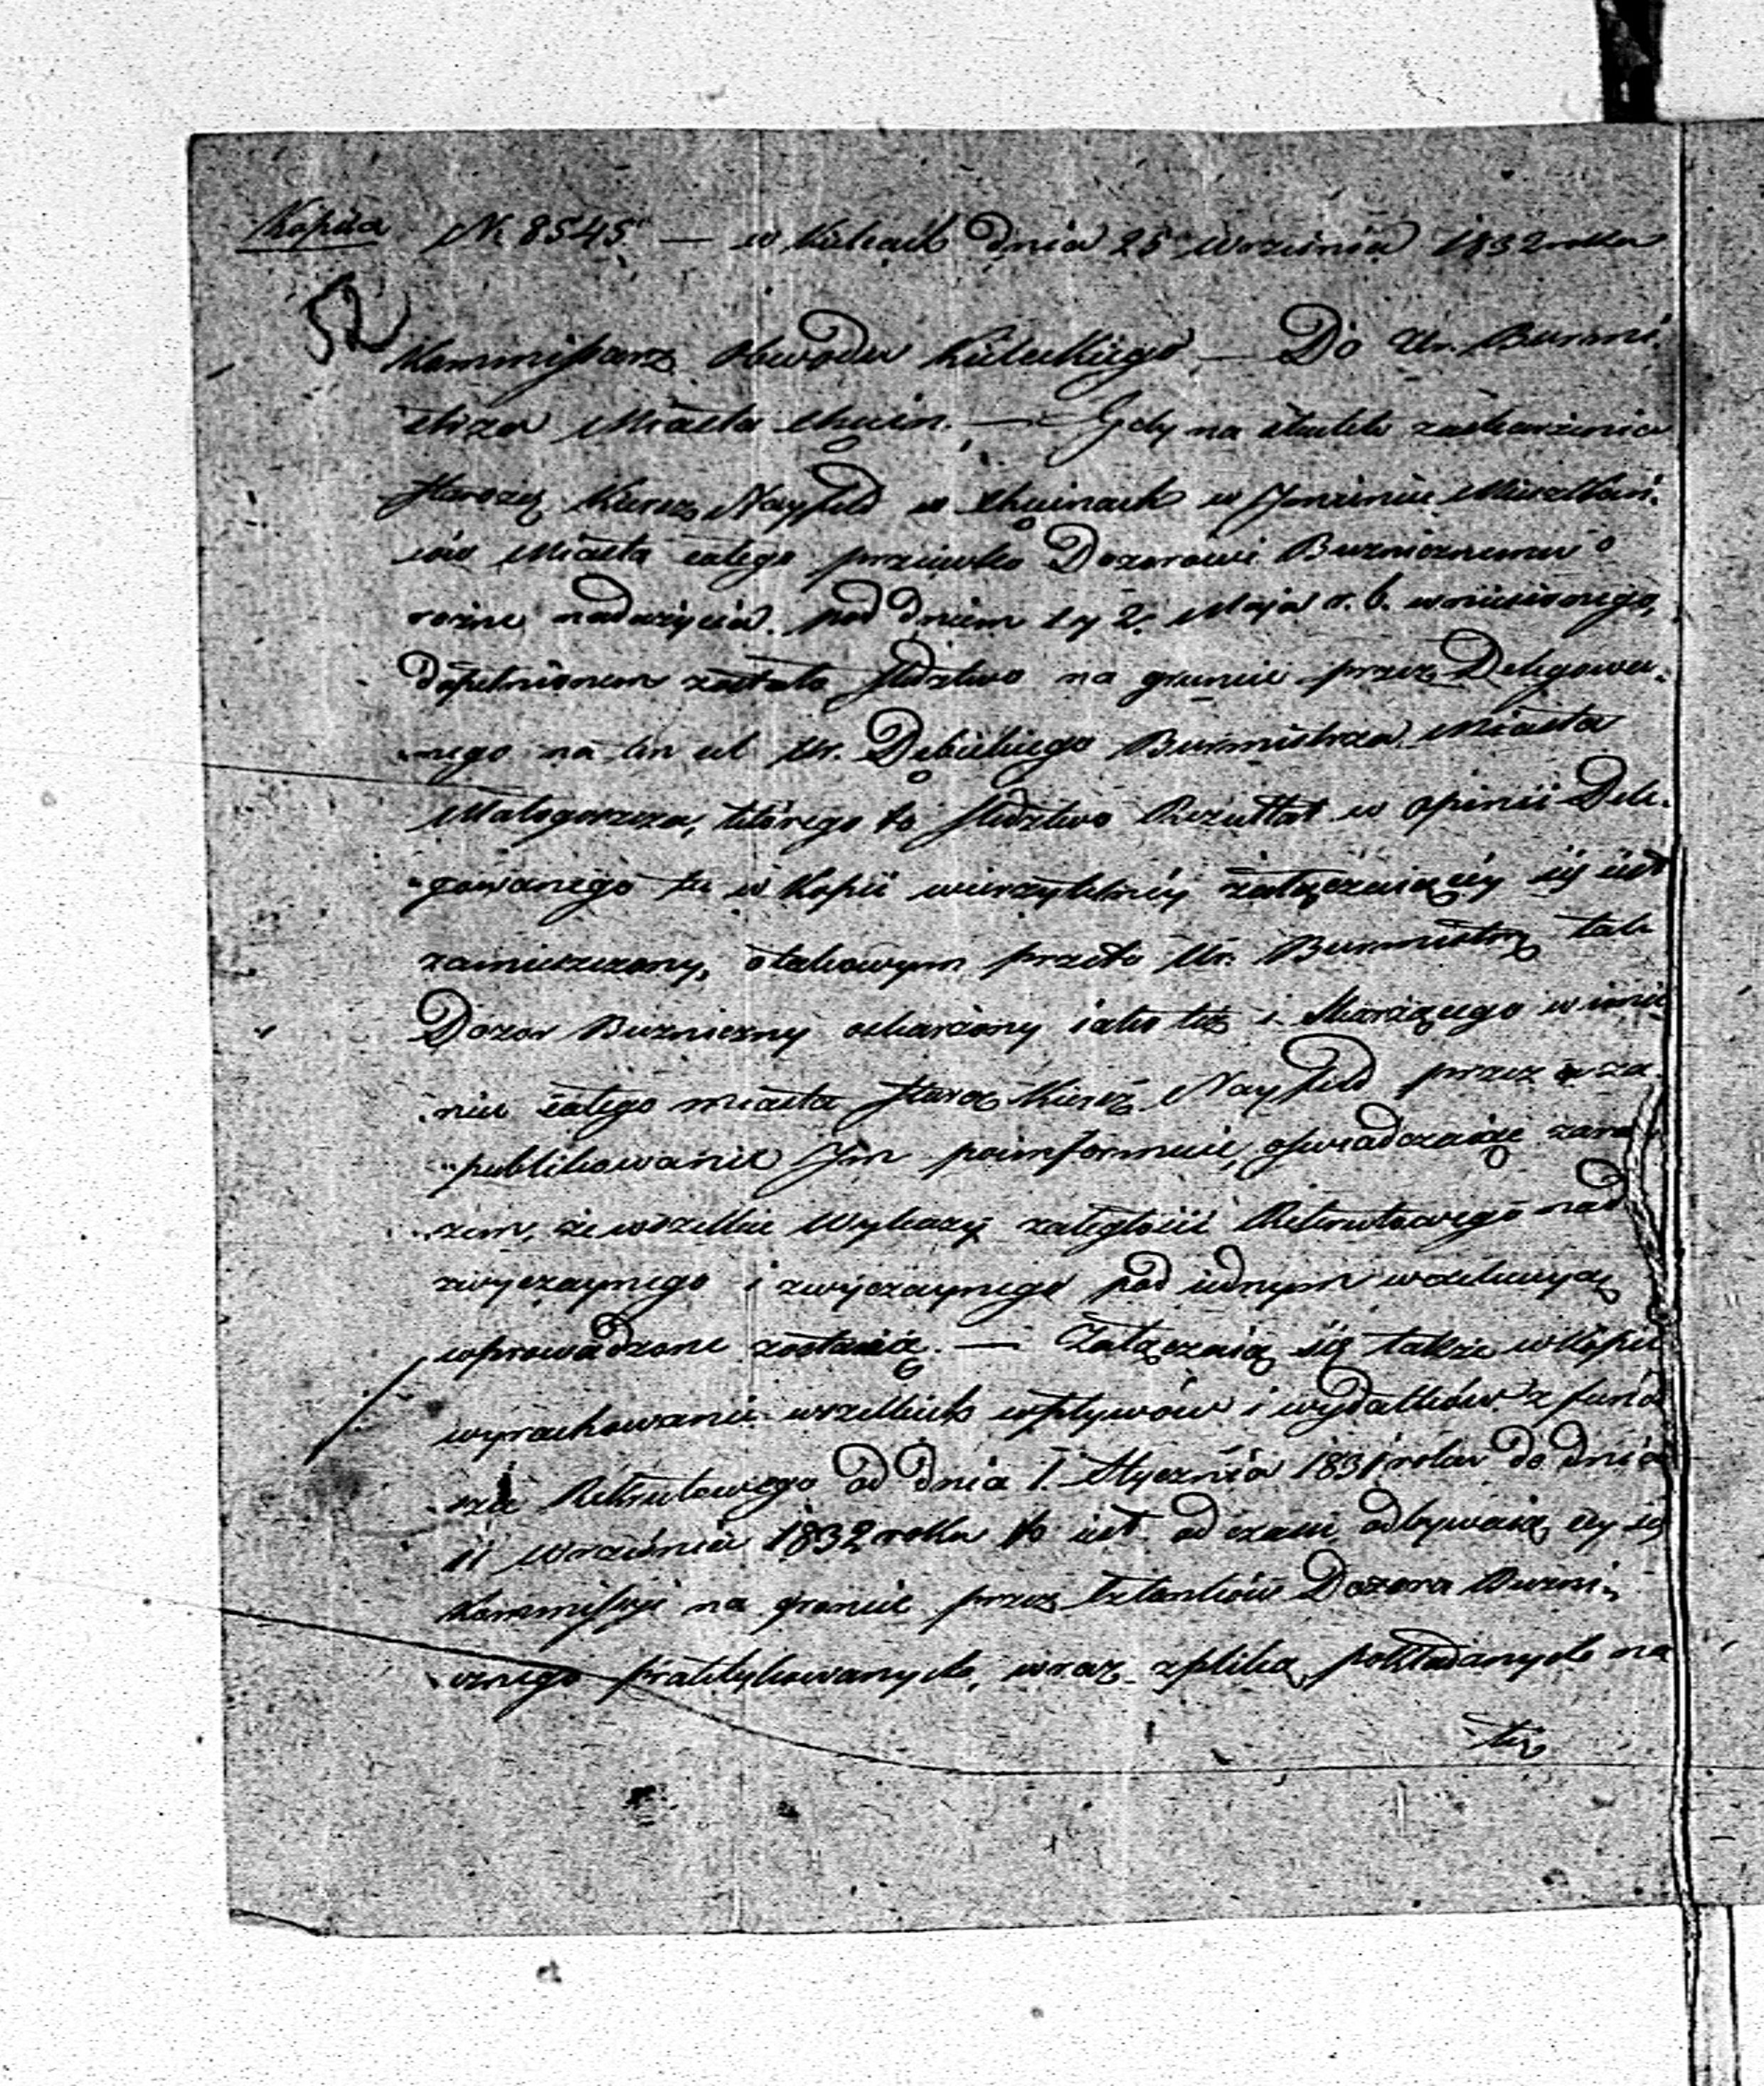 Kopiia № 8545. — w Kielcach dnia 25 września 1832 roku
52
Kommissarz Obwodu Kieleckiego — Do Ur. Burmi-
strza Miasta Chęcin. — Gdy na skutek zaskarżenia
Starozq Kiersz Nayfeld w Chęcinach w Imieniu Mieszkań-
ców Miasta całego przeciwko Dozorowi Bużnicznemu o
rożne nadużycia pod dniem 1 y 2. Maja r. b. wniesionego,
dopełnionem zostało śledztwo na gruncie przez Delegowa-
nego na ten cel Ur. Dębickiego Burmistrza Miasta
Małogoszcza, którego to śledztwo Rezultat w opinii Dele-
gowanego tu w Kopii wierzytelnéy załączaiącéy się iest
zamieszczony, o takowym przeto Ur. Burmistrz tak
Dozor Bużniczny oskarżony iako też i Skarżącego w imie-
niu całego miasta Staroz Kiersz Nayfeld przez za-
publikowanie Im poinformuie, oświadczaiąc zara-
zem, że wszelkie Wykazy zaległości Rekrutowego nad
zwyczaynego i zwyczaynego pod iednym
wprowadzone zostaią. — Załączaią się także w Kopii
wyrachowanie wszelkich wpływów i wydatków z fundu-
szu Rekrutowego od dnia 1. Stycznia 1831 roku do dnia
11 września 1832 roku to iest od czasu odbywaiącéy się
Kommissyi na gruncie przez Członków Dozoru Bużni-
cznego praktykowanych, wraz z pliką poskładanych na
tę